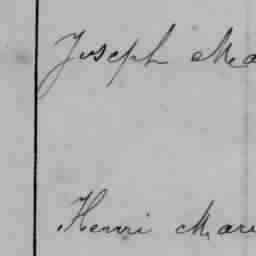 Joseph Ma
Henri Mari